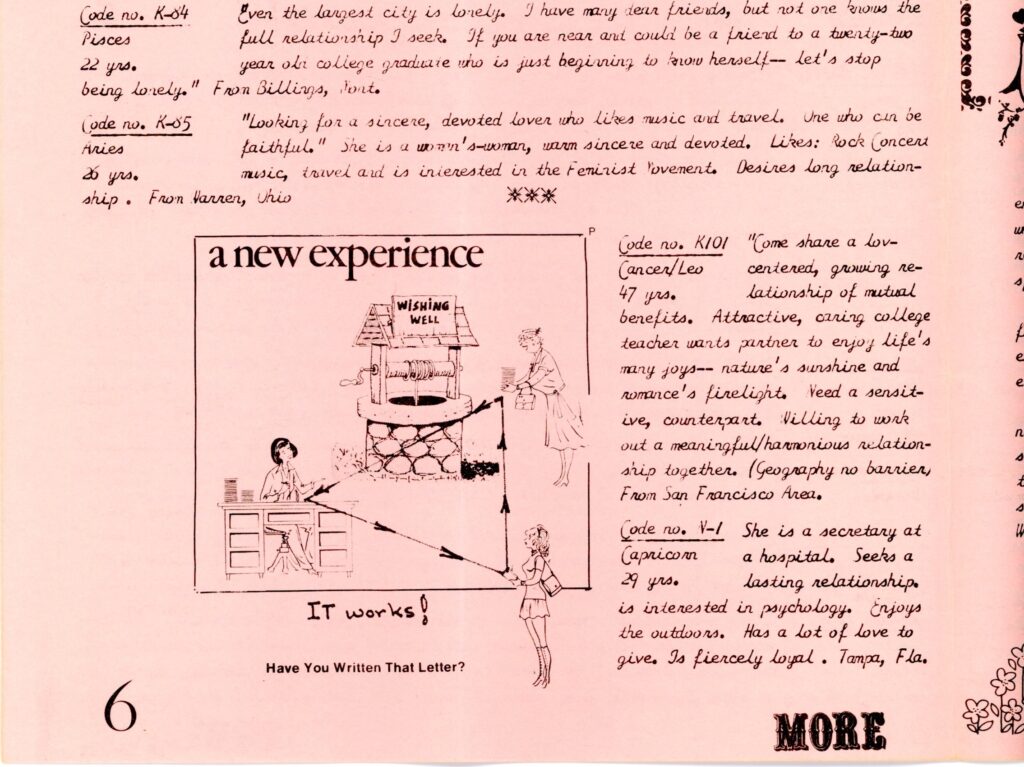 Code no. K-84 Even the largest city is lonely. I have many dear friends, but not one knows the
Pisces full relationship I seek. If you are near and could be a friend to a twenty-two
22 yrs. year old college graduate who is just beginning to know herself-- let's stop
being lonely." From Billings, Mont.
Code no. K-85 "Looking for a sincere, devoted lover who likes music and travel. One who can be
Aries faithful." She is a women's-woman, warm sincere and devoted. Likes: Rock Concert
26 yrs. music, travel and is interested in the Feminist Movement. Desires long relation-
ship. From Warren, Ohio
a new experience
WISHING
WELL
P
IT works!
Have You Written That Letter?
Code no. K101 "Come share a lov-
Cancer/Leo centered, growing re-
47 yrs. lationship of mutual
benefits. Attractive, caring college
teacher wants partner to enjoy life's
many joys-- nature's sunshine and
romance's firelight. Need a sensit-
ive, counterpart. Willing to work
out a meaningful/harmonious relation-
ship together. (Geography no barrier,
From San Francisco Area.
Code no. V-1 She is a secretary at
Capricorn a hospital. Seeks a
29 yrs. lasting relationship.
is interested in psychology. Enjoys
the outdoors. Has a lot of love to
give. Is fiercely loyal. Tampa, Fla.
6
MORE